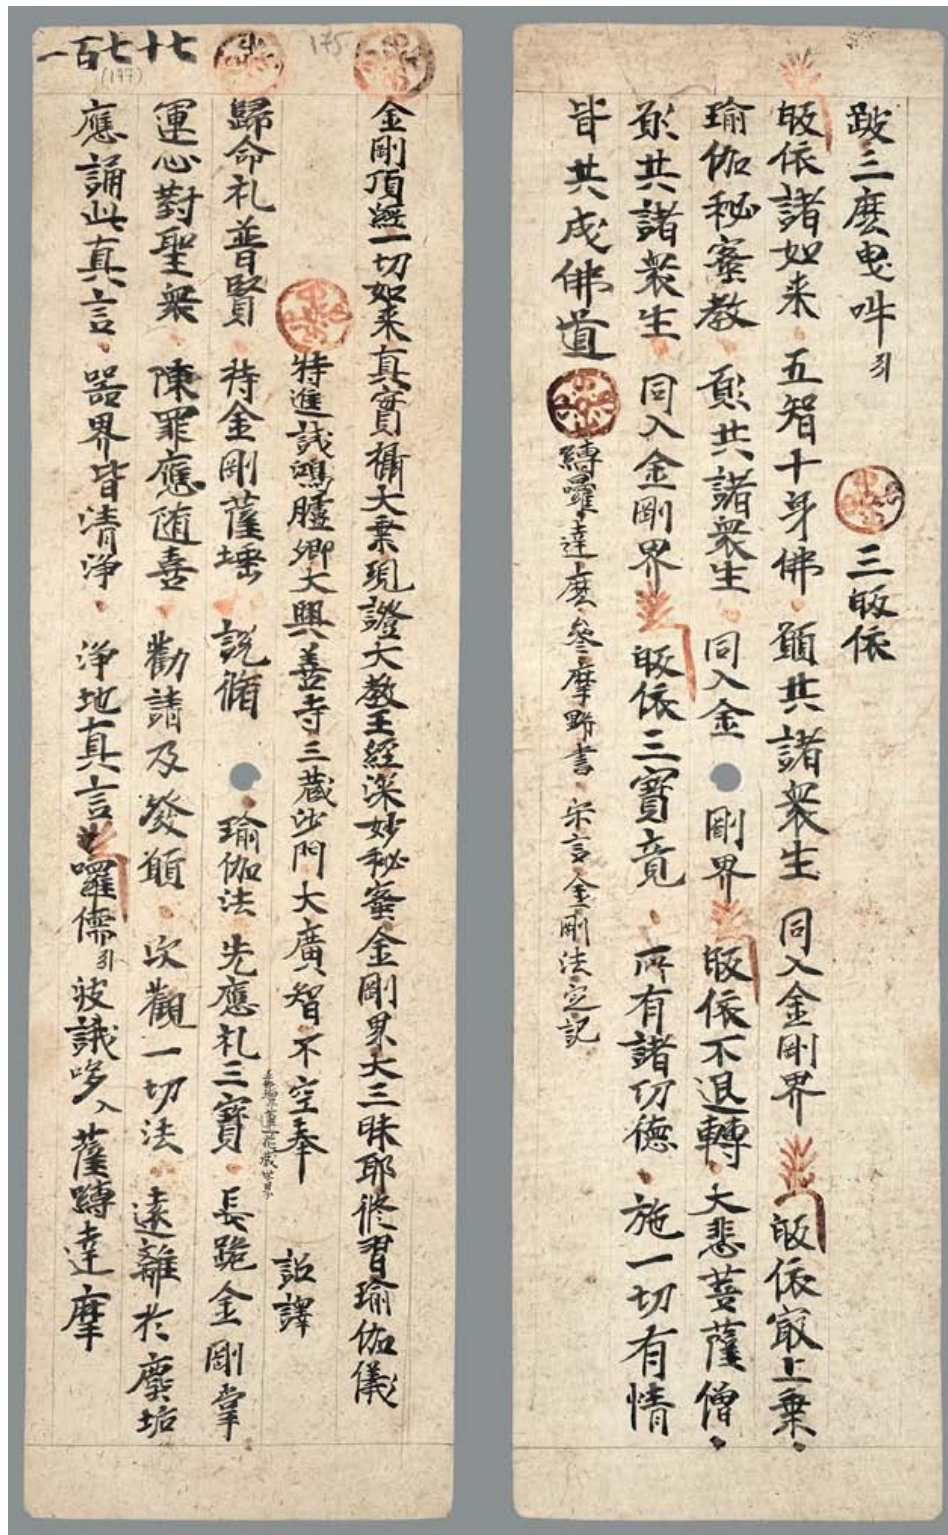 跛三麼曳吽引 三皈依
皈依諸如来 五智十身佛 願共諸衆生 同入金剛界 皈依㝡上乗
瑜伽秘密教 願共諸衆生 同入金剛界 皈依不退轉 大悲菩薩僧
願共諸衆生 同入金剛界 皈依三寶竟 所有諸功德 施一切有情
皆共成佛道 縛囉達麼參摩野書 宋言金剛法定記
一百七十七
(177)
175
金剛頂經一切如来真實攝大乗現證大教王經深妙秘密金剛界大三昧耶修習瑜伽儀
特進試鴻臚卿大興善寺三藏沙門大廣智不空奉 詔譯
歸命礼普賢 持金剛薩埵 説脩瑜伽法 先應礼三寶 長跪金剛掌
運心對聖衆 陳罪應随喜 勸請及發願 次觀一切法 遠離於塵垢
應誦此真言 器界皆清浄 浄地真言 囉儒引波誐哆入薩縛達摩